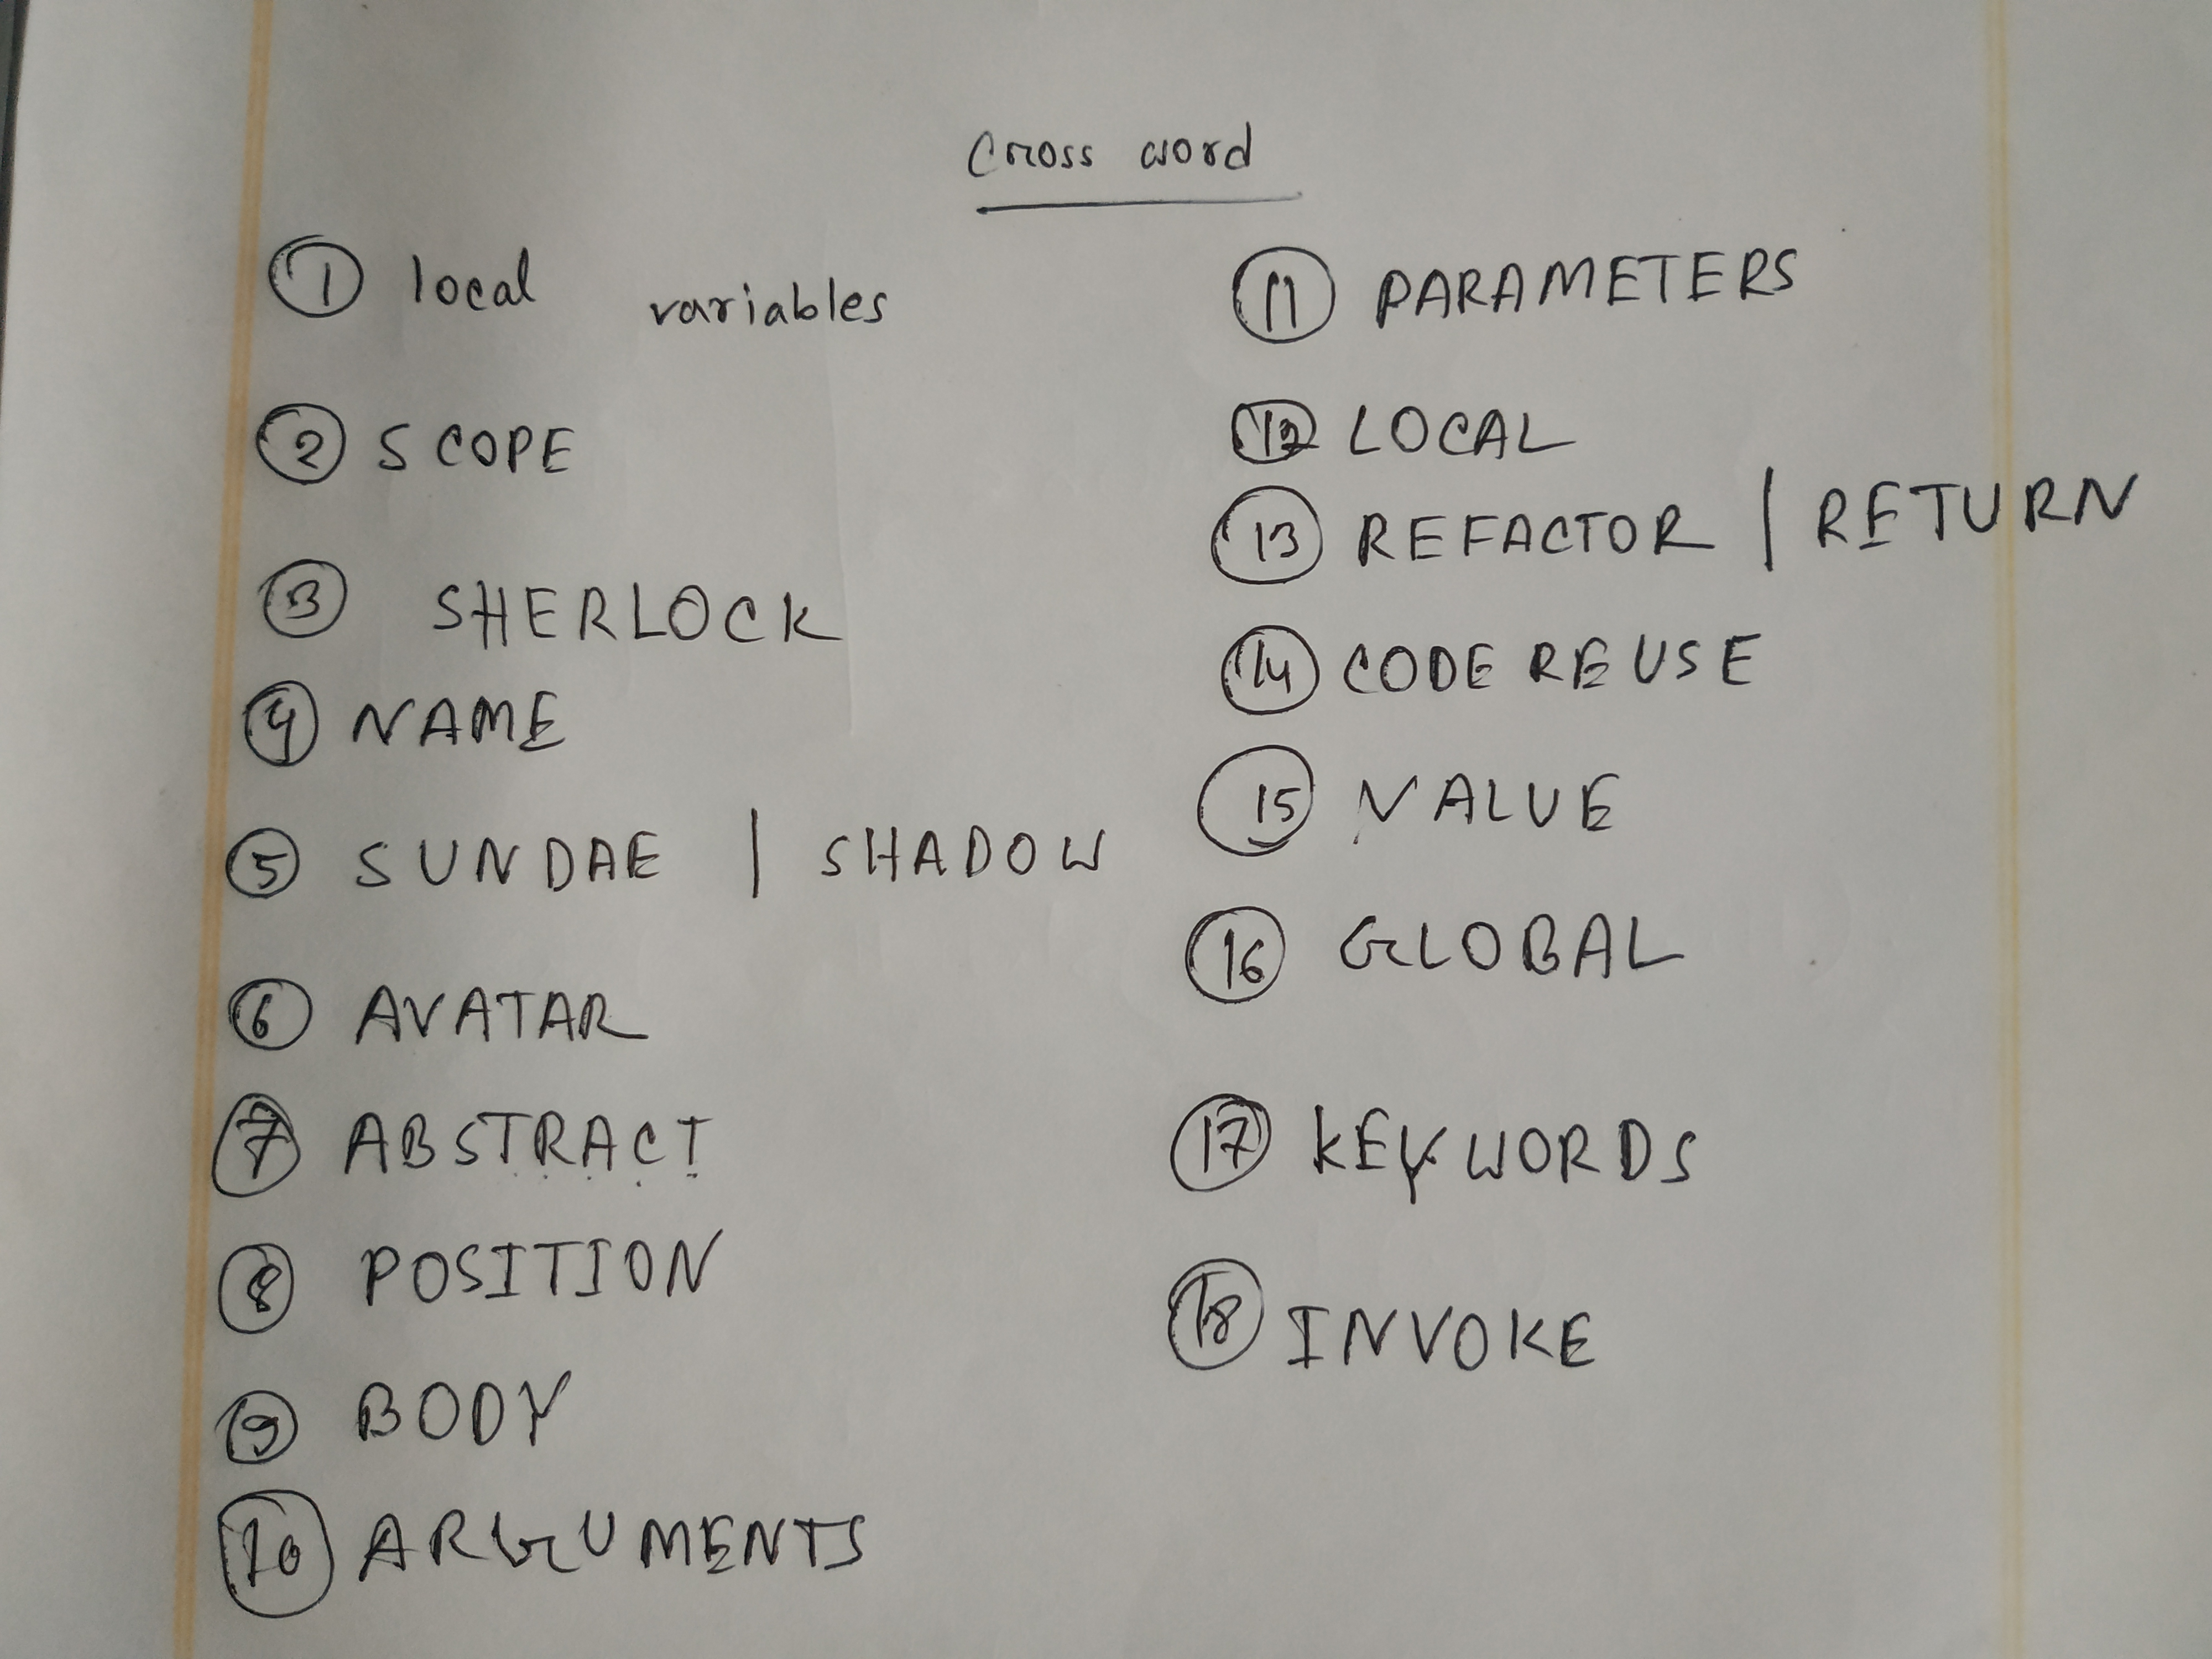 Cross word
1 local variables
2 SCOPE
3 SHERLOCK
4 NAME
5 SUNDAE | SHADOW
6 AVATAR
7 ABSTRACT
8 POSITION
9 BODY
10 ARGUMENTS
11 PARAMETERS
12 LOCAL
13 REFACTOR | RETURN
14 CODE REUSE
15 VALUE
16 GLOBAL
17 KEYWORDS
18 INVOKE